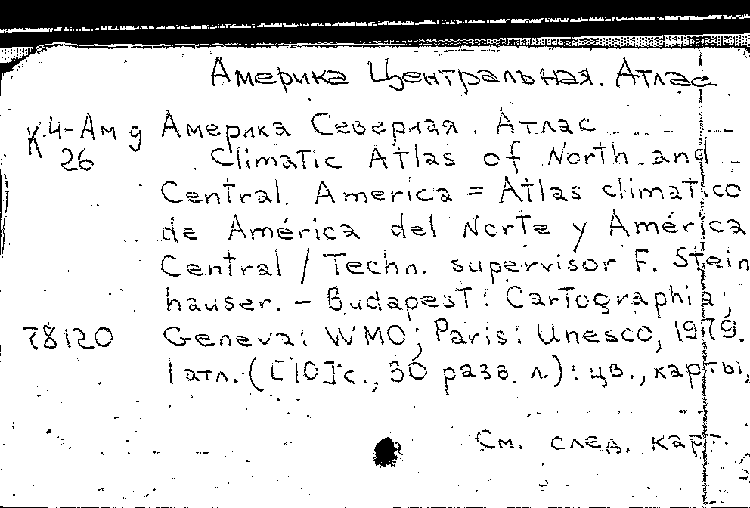 Америка Центральная. Атлас
К.4-Ам д Америка Северная. Атлас
26 Climatic Atlas of North and
Central America = Atlas climatico
de América del Norte y América
Central / Techn. supervisor F. Stein
hauser. - Budapest: Cartographia;
78120 Geneva: WMO; Paris: Unesco, 1979.
1 атл. ([10]с., 30 разв. л.): цв., карты,
См. след. карт.